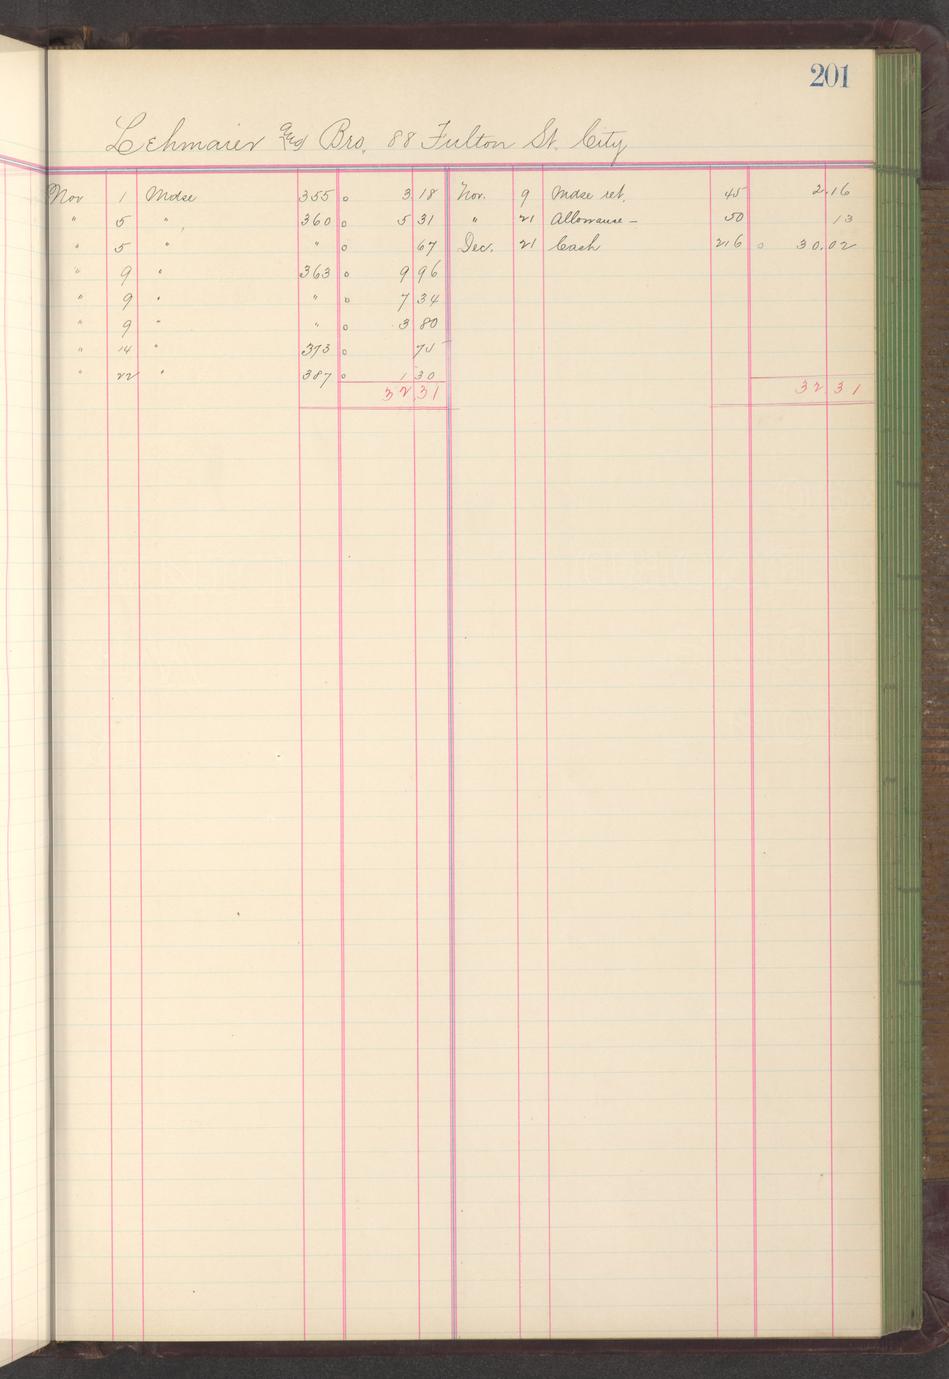 201
Lehmaier and Bro. 88 Fulton St. City
Nov 1 Mdse 355 o 3 18 Nov. 9 Mdse ret. 45 2.16
" 5 " 360 o 5 31 " 21 Allowance - 50 13
" 5 " " o 67 Dec. 21 Cash 216 o 30.02
" 9 " 363 o 9 96
" 9 " " o 7 34
" 9 " " o 3 80
" 14 " 373 o 75
" 22 " 387 o 1 30
32 31 32 31